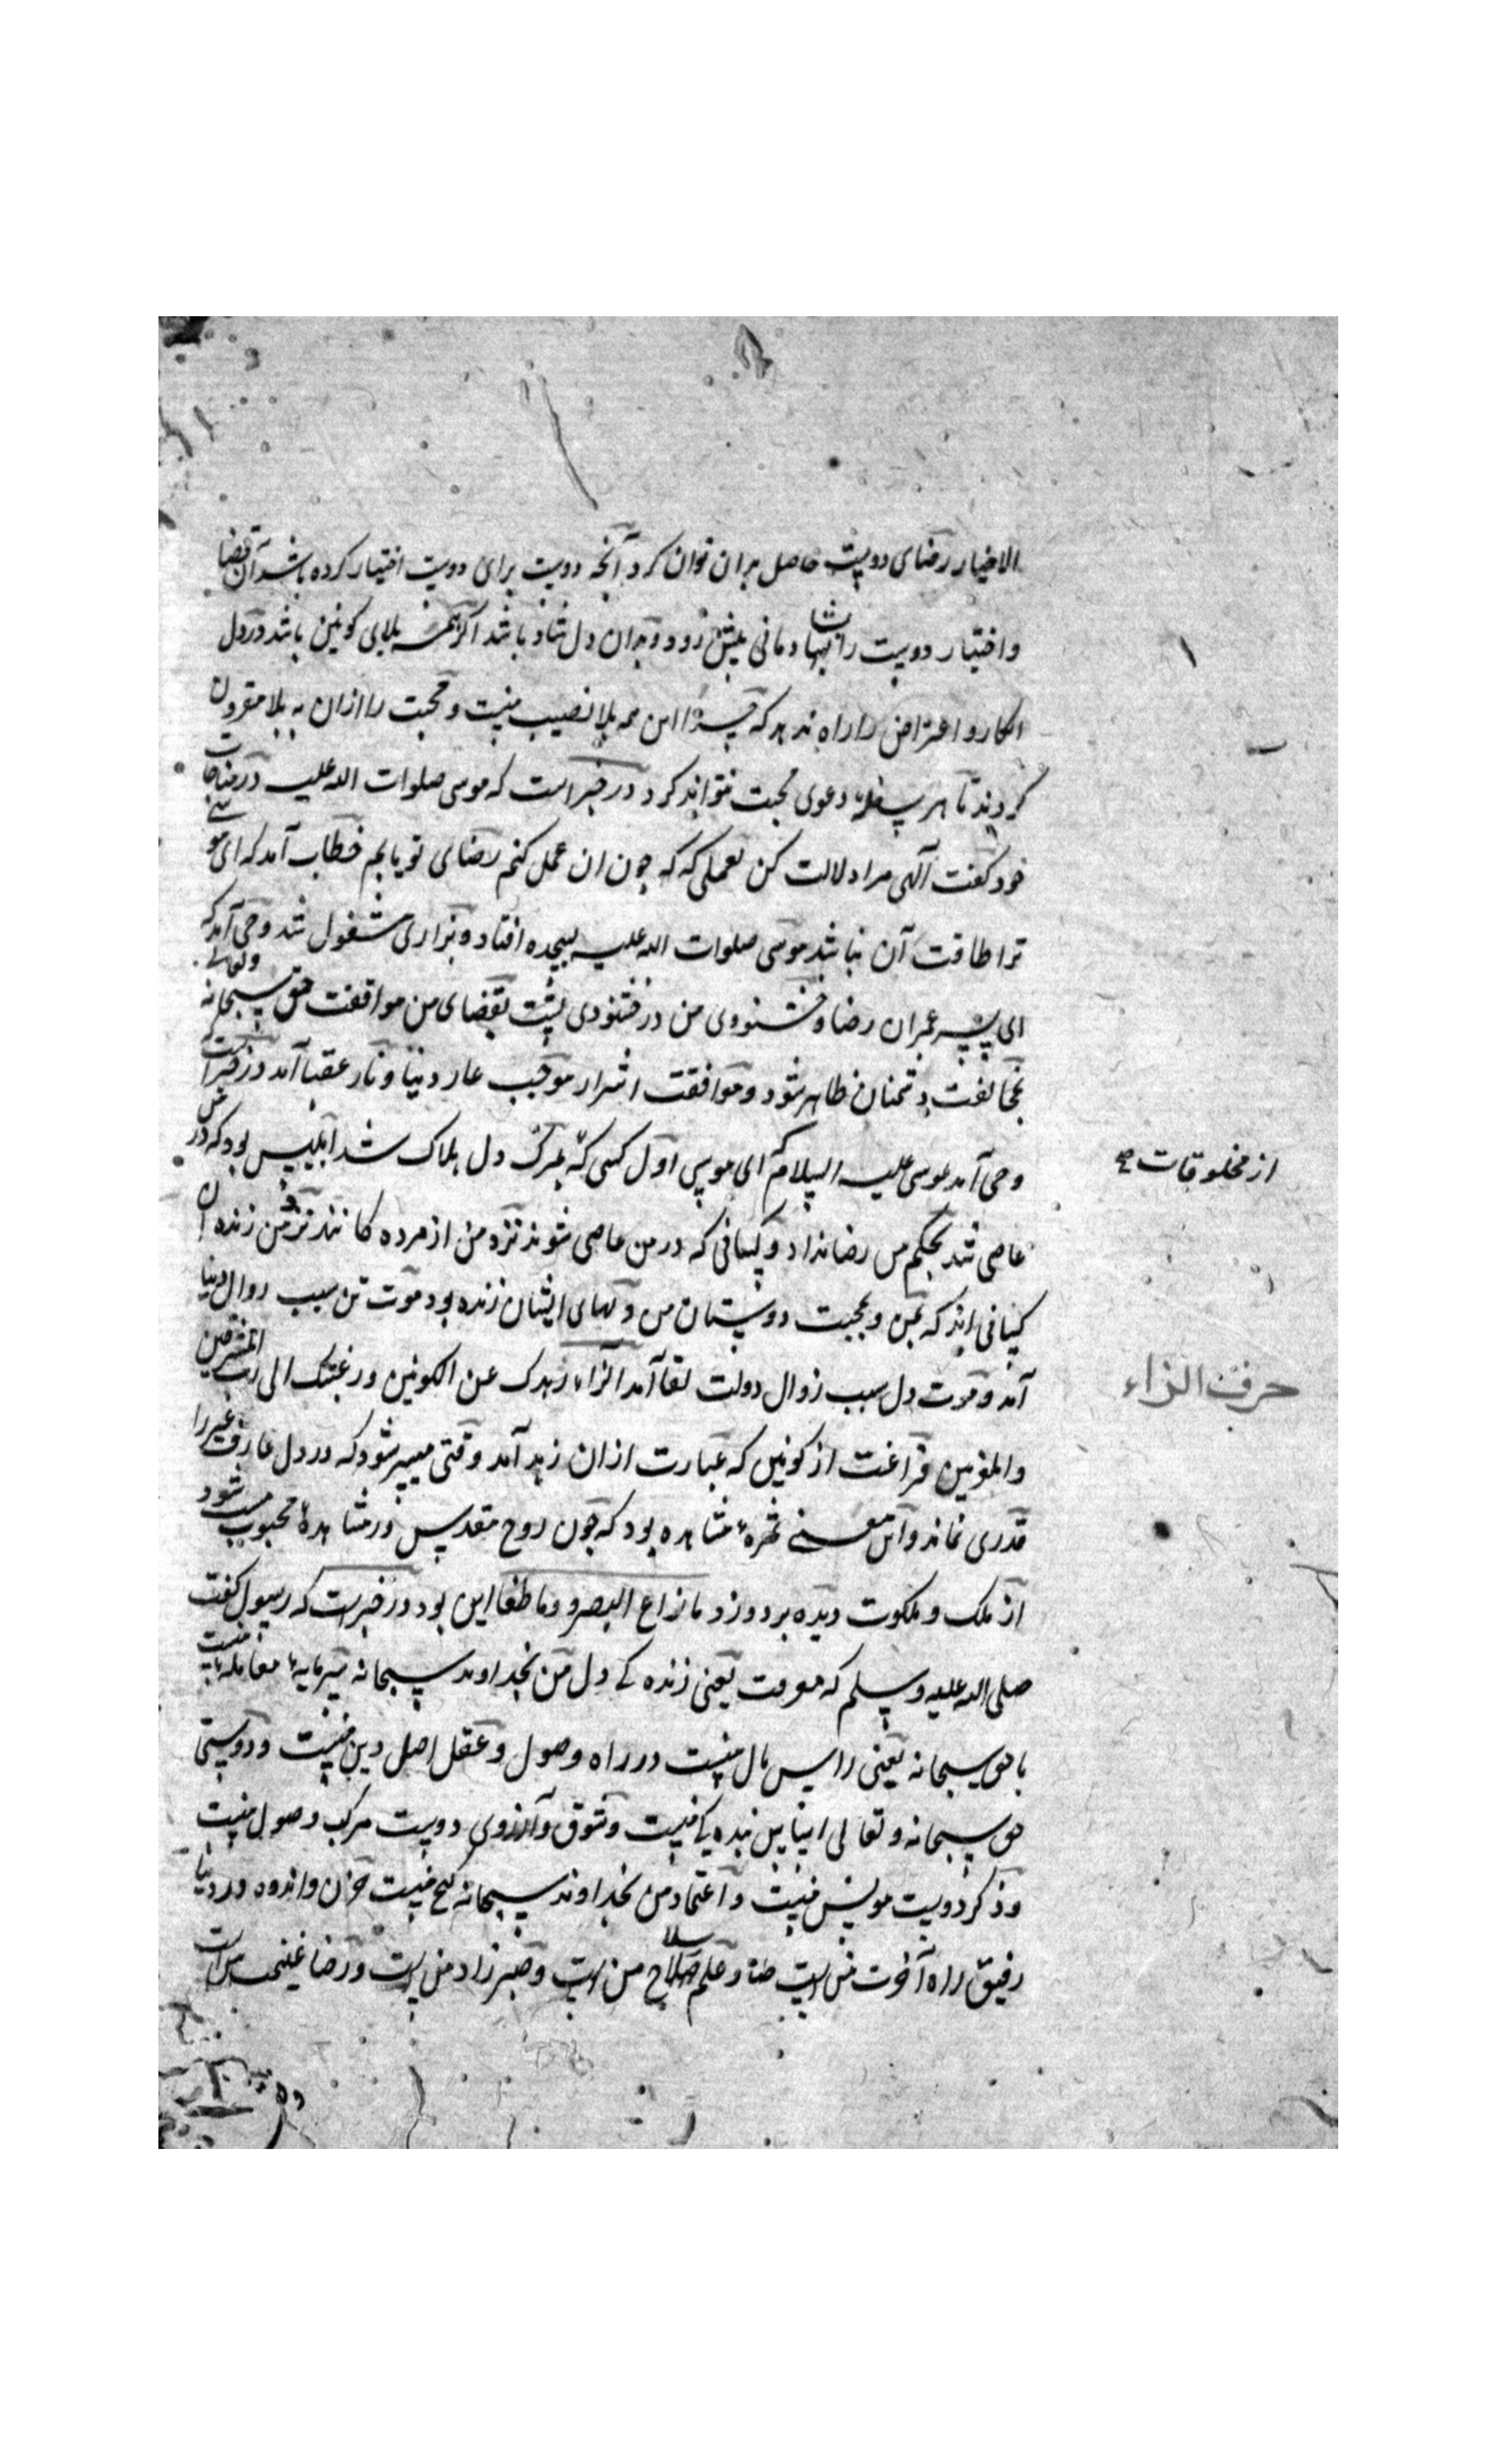 الاخیار رضای دوست حاصل بدان توان کرد آنچه دوست برای دوست اختیار کرده باشد آن قضا
و اختیار دوست را بشادمانی پیش رود و بدان دل شاد باشد اگر همه بلای کونین باشد در دل
انکار و اعتراض را راه ندهد که چرا این همه بلا نصیب منست و محبت را ازان به بلا مقرون
کردند تا هر سفله دعوی محبت نتواند کرد در خبر است که موسی صلوات الله علیه در مناجات
خود گفت الهی مرا دلالت کن بعملی که چون ان عمل کنم رضای تو یابم خطاب آمد که ای موسی
ترا طاقت آن نباشد موسی صلوات الله علیه بسجده افتاد و بزاری مشغول شد وحی آمد که
ای پسر عمران رضا و خشنودی من در خشنودی تست بقضای من موافقت حق سبحانه وتعالی
بمخالفت دشمنان ظاهر شود و موافقت اشرار موجب عار دنیا و نار عقبا آمد در خبر است که
وحی آمد بموسی علیه السلام که ای موسی اول کسی که بمرگ دل هلاک شد ابلیس بود که در من
از مخلوقات صح
عاصی شد بحکم من رضا نداد و کسانی که در من عاصی شوند نزد من از مرده کانند نزد من زنده ان
کسانی اند که بمن و بمحبت دوستان من دلهای ایشان زنده بود موت تن سبب زوال دنیا
آمد و موت دل سبب زوال دولت لقا آمد الزاء زهدک عن الکونین و رغبتک الی رب المشرقین
حرف الزاء
والمغربین فراغت از کونین که عبارت ازان زهد آمد وقتی میسر شود که در دل عارف غیر را
قدری نماند و این معنی ثمرهٔ مشاهده بود که چون روح مقدس در مشاهدهٔ محبوب مست شود
از ملک و ملکوت دیده بر دوزد ما زاغ البصر و وما طغا این بود در خبرست که رسول گفت
صلی الله علیه وسلم که معرفت یعنی زنده کی دل من بخداوند سبحانه سرمایهٔ معاملهٔ منست
با حق سبحانه یعنی راس مال منست در راه وصول و عقل اصل دین منست و دوستی
حق سبحانه و تعالی منست و شوق و آرزوی دوست مرکب وصول منست
و ذکر دوست مونس منست و اعتماد من بخداوند سبحانه گنج منست حزن و اندوه در دنیا
رفیق راه آخرت من است و علم سلاح من است و صبر زاد من است و رضا غنیمت من است